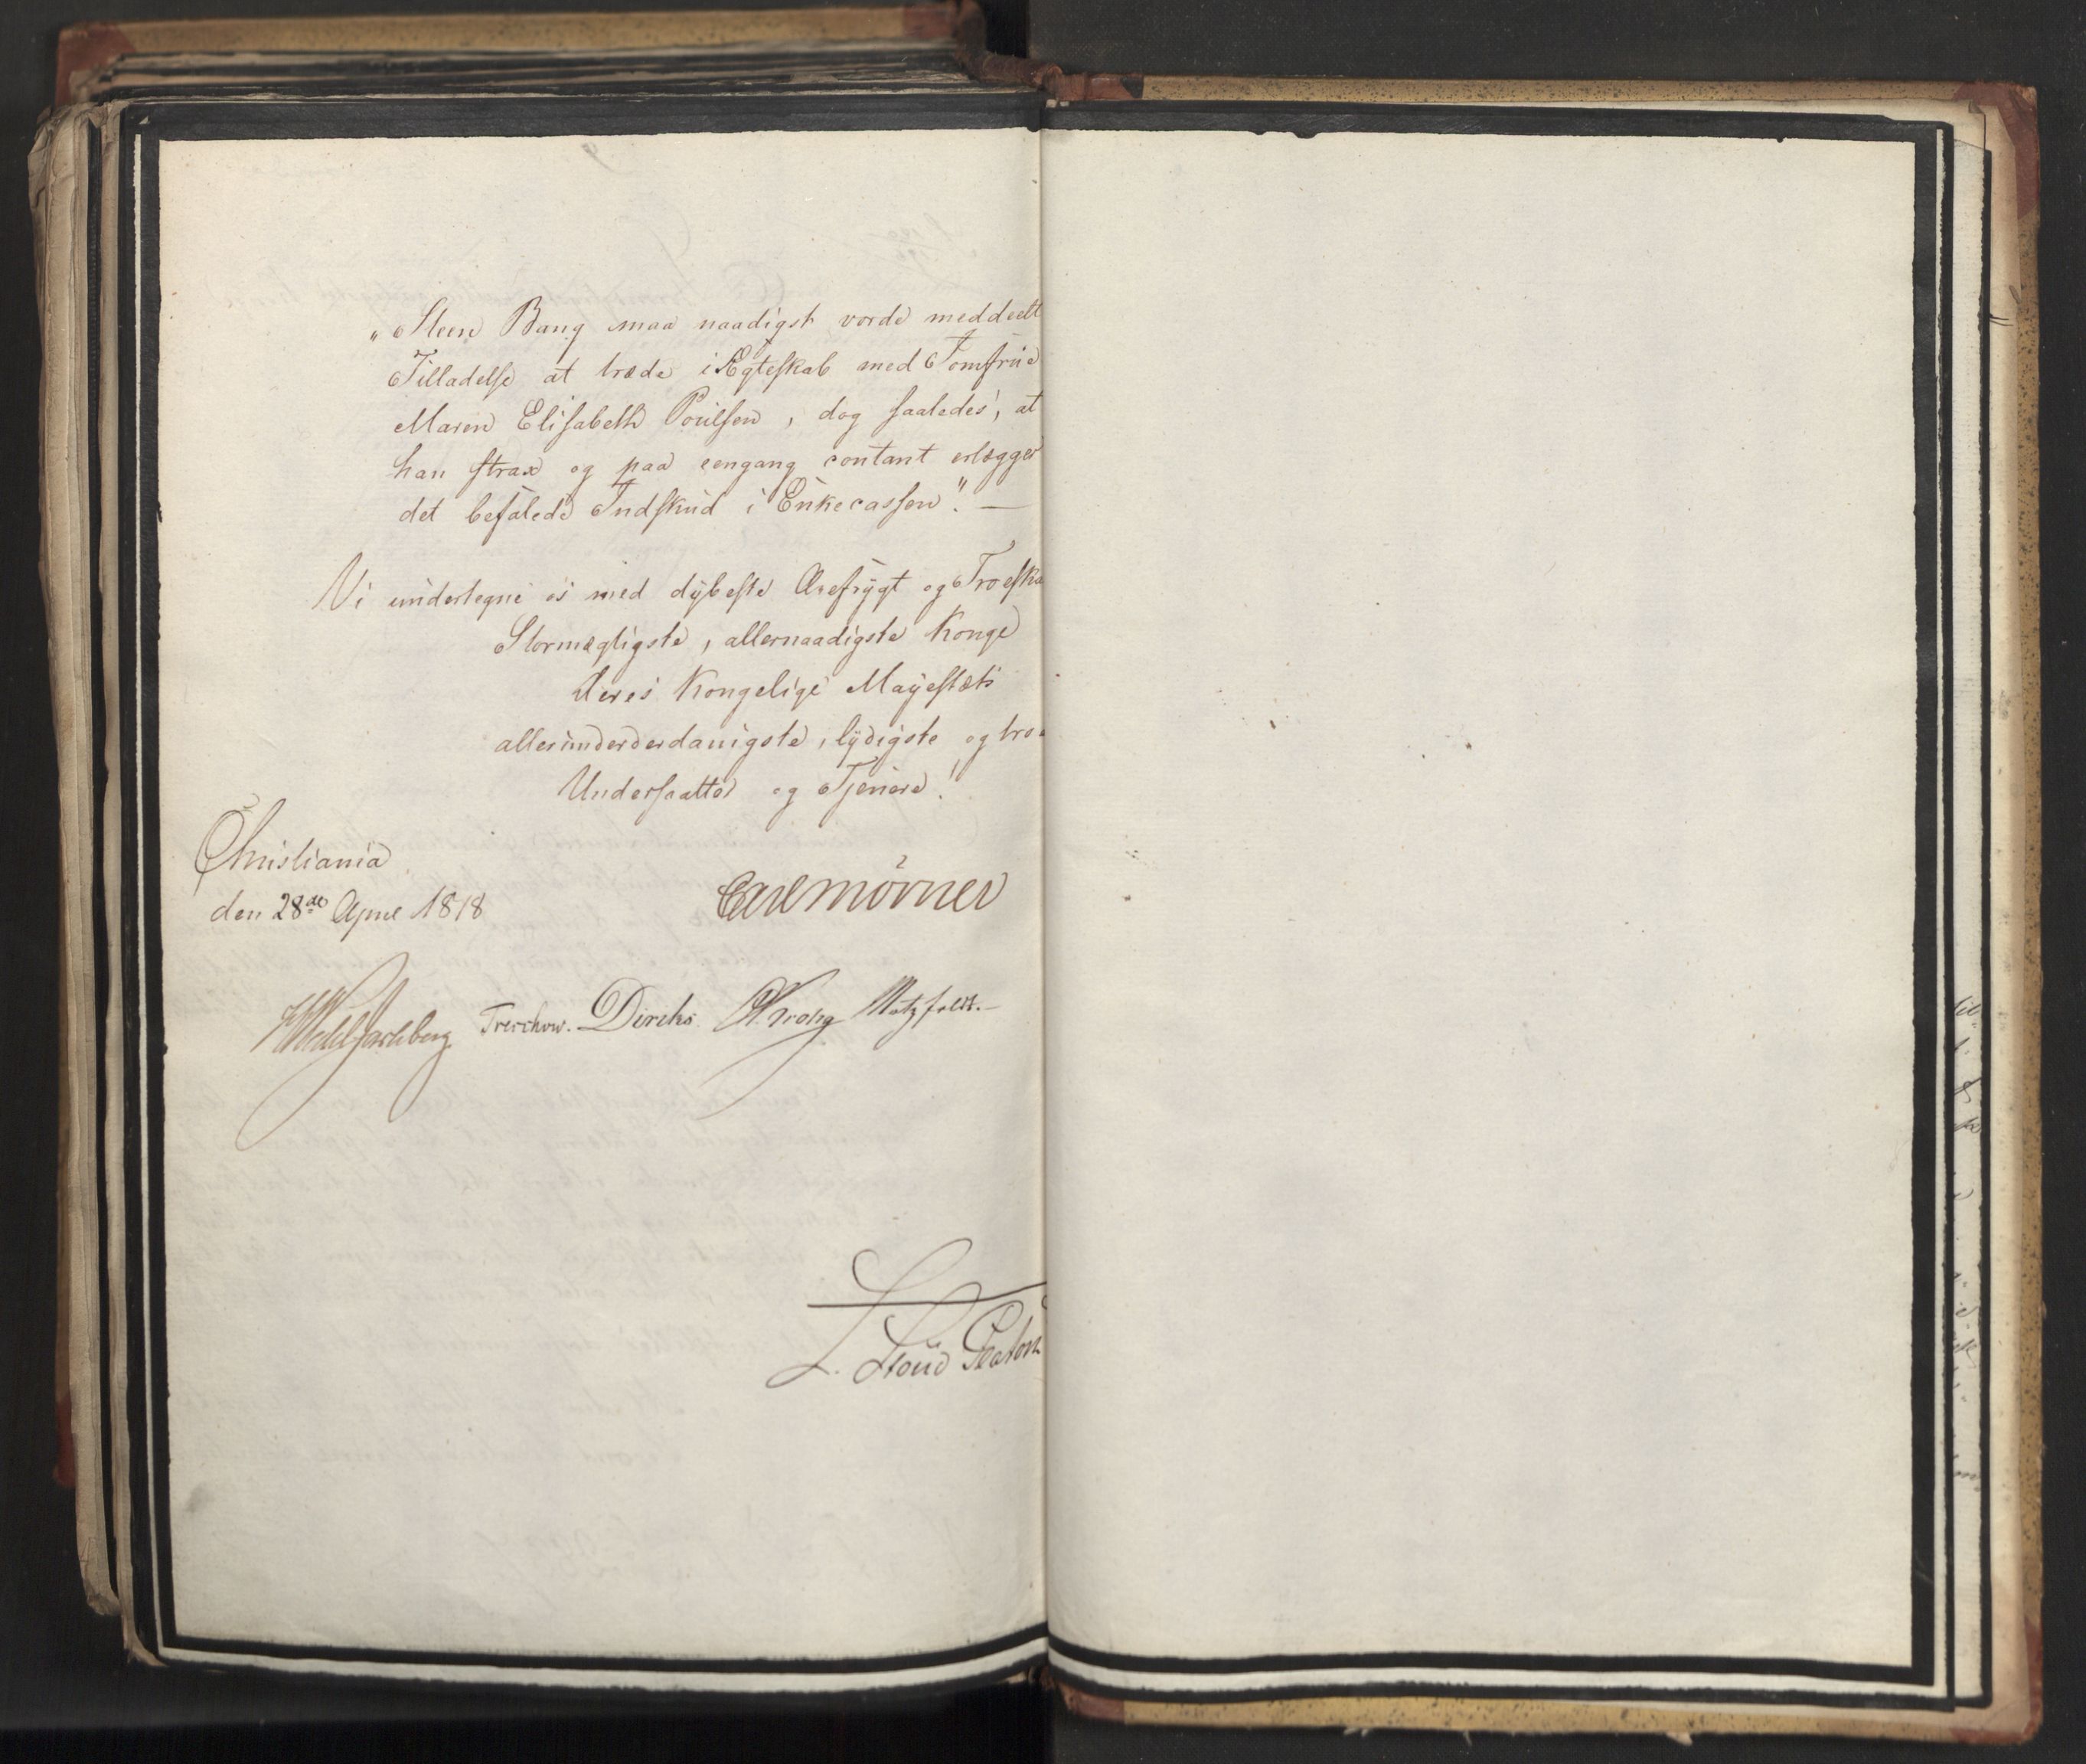 „Steen Bang maa naadigst vorde meddeelt
Tilladelse at træde i Ægteskab med Jomfrue
Maren Elisabeth Poulsen, dog saaledes, at
han strax og paa eengang contant erlægger
det befalede Indskud i Enkecassen”. —
Vi undertegne os med dybeste Ærefrygt og Troeska
Stormægtigste, allernaadigste Konge
Deres Kongelige Mayestæts
allerunderderdanigste, lydigste og troe
Undersaatter og Tjenere!
Christiania
den 28de April 1818
Carl Mörner
HWedel Jarlsberg Treschow. Diricks. C. Krohg Motzfeldt. —
L. Stoud Platou